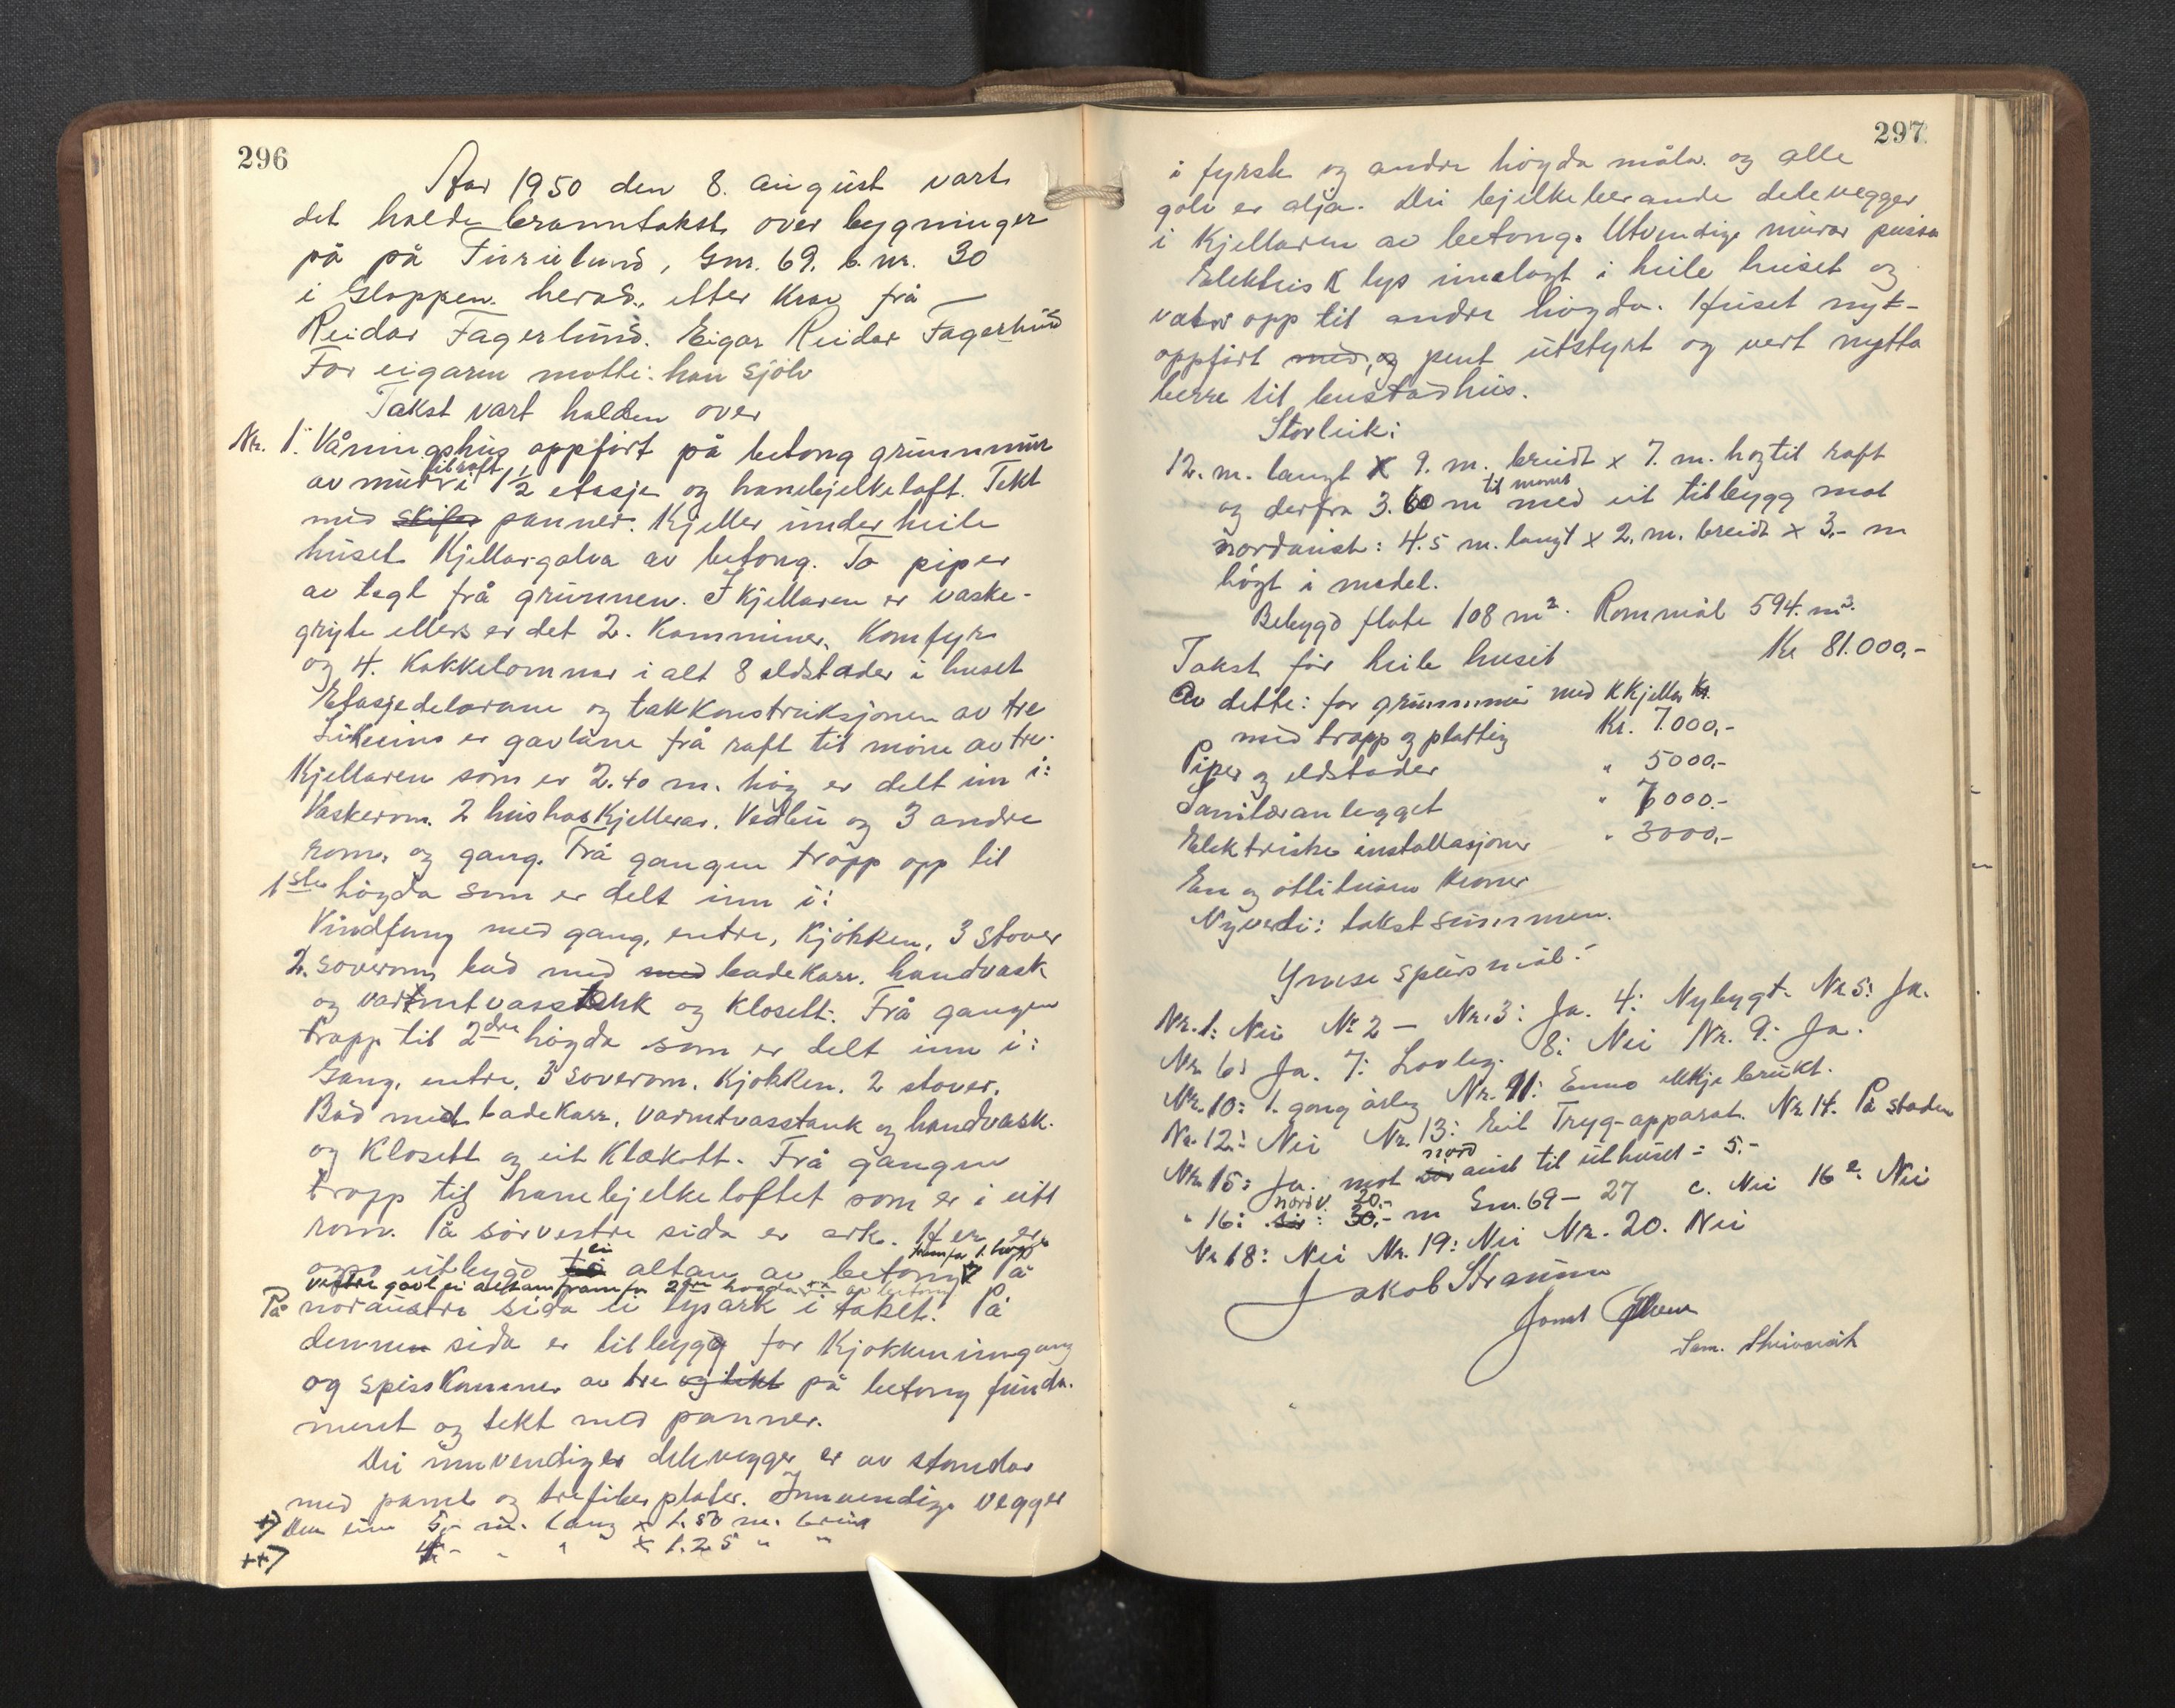 296
Aar 1950 den 8. august vart
det halde branntakst over bygninger
på på Furulund, Gnr. 69. b.nr. 30
i Gloppen herad, etter krav frå
Reidar Fagerlund. Eigar Reidar Fagerlund
For eigaren møtte: han sjölv
Takst vart halden over
Nr. 1. Våningshus oppfört på betong grunnmur
av mur til raft i 1½ etasje og hanebjelkeloft. Tekt
med skifer panner. Kjeller under heile
huset Kjellargolva av betong. To piper
av tegl frå grunnen. I kjellaren er vaske-
gryte ellers er det 2. Kamminer, Komfyr
og 4. Kakkelomnar i alt 8 eldstader i huset
Etasjedelarane og takkonstruksjonen av tre
Likeeins er gavlane frå raft til möne av tre.
Kjellaren som er 2.40 m. høg er delt inn i:
Vaskerom. 2 hushaskjellerar. Vedbu og 3 andre
rom, og gang. Frå gangen tropp opp til
1ste högda som er delt inn i:
Vindfang med gang, entre, Kjökken, 3 stover
2. soverom, bad med med badekarr. handvask
og varmtvasstank og klosett. Frå gangen
tropp til 2dre högda som er delt inn i:
Gang, entre, 3 soverom. Kjökken. 2 stover.
Bad med badekarr, varmtvasstank og handvask.
og Klosett og eit Klekott. Frå gangen
tropp til hanebjelkeloftet som er i eitt
rom. På sörvestre sida er ark. Her er
opp utbygd to ei altan av betong framfor 1. högd På
vestre gavl ei altan framfor 2dre högda ++ av betong
På noraustre sida ei lysark i taket. På
dennen sida er tilbygg for Kjøkkeninngang
og spisskammer av tre og tekt på betong funda-
ment og tekt med panner.
Dei innvendiger delevegger er av stendar
med panel og trefiberplater. Innvendige vegger
+) Den eine 5,- m. lang x 1.50 m. breid
++) 4,- " " x 1.25 " "
297
i fyrste og andre högda måla. og alle
golv er olja. Dei bjelkeberande delevegger
i Kjellaren av betong. Utvendige murar pussa
Elektrisk lys innlagt i heile huset og
vatn opp til andre högda. Huset nyt-
oppfört med, og pent utstyrt og vert nytta
berre til bustadhus.
Storleik:
12. m. langt x 9. m. breidt x 7. m. hogtil raft
og derfra 3.60 m til mønet med eit tilbygg mot
nordaust: 4.5 m. langt x 2. m. breidt x 3,- m
högt i medel.
Bebygd flate 108 m². Rommål 594. m³.
Takst for heile huset Kr 81.000,-
Av dette: for grunnmur med Kkjellar Kr.
med tropp og platting Kr. 7.000,-
Piper og eldstader " 5000,-
Sanitæranlegget " 7000.-
Elektriske installasjoner " 3000,-
En og ottitusen Kroner
Nyverdi: takstsummen.
Ymse spursmål:
Nr. 1: Nei Nr 2 — Nr. 3: Ja. 4: Nybygt. Nr 5: Ja.
Nr 6: Ja. 7: Lovleg. 8: Nei Nr. 9: Ja.
Nr. 10: 1. gong årleg Nr. 11: Enno ikkje brukt.
Nr. 12: Nei Nr. 13: Eit Tryg-apparat. Nr 14. På staden
Nr 15: Ja. mot nord aust til uthuset = 5.-
" 16: sör: nordv. 30,- 20.- m Gnr. 69 — 27 c. Nei 16 e. Nei
Nr 18: Nei Nr. 19: Nei Nr. 20. Nei
Jakob Straume